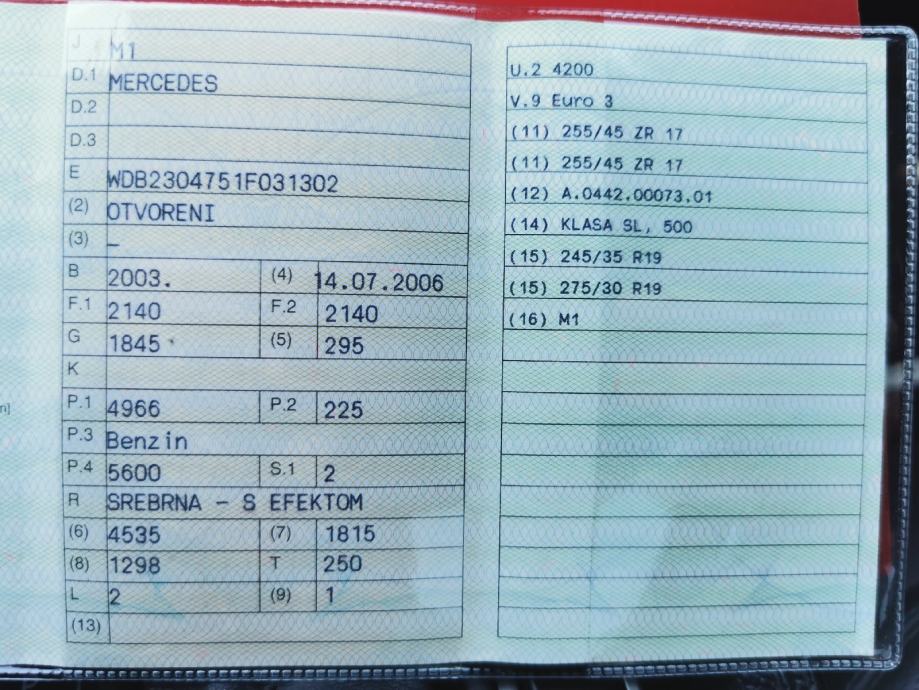 J M1
D.1 MERCEDES
D.2
D.3
E WDB2304751F031302
(2) OTVORENI
(3) –
B 2003. (4) 14.07.2006
F.1 2140 F.2 2140
G 1845 (5) 295
K
P.1 4966 P.2 225
P.3 Benzin
P.4 5600 S.1 2
R SREBRNA - S EFEKTOM
(6) 4535 (7) 1815
(8) 1298 T 250
L 2 (9) 1
(13)
U.2 4200
V.9 Euro 3
(11) 255/45 ZR 17
(11) 255/45 ZR 17
(12) A.0442.00073.01
(14) KLASA SL, 500
(15) 245/35 R19
(15) 275/30 R19
(16) M1